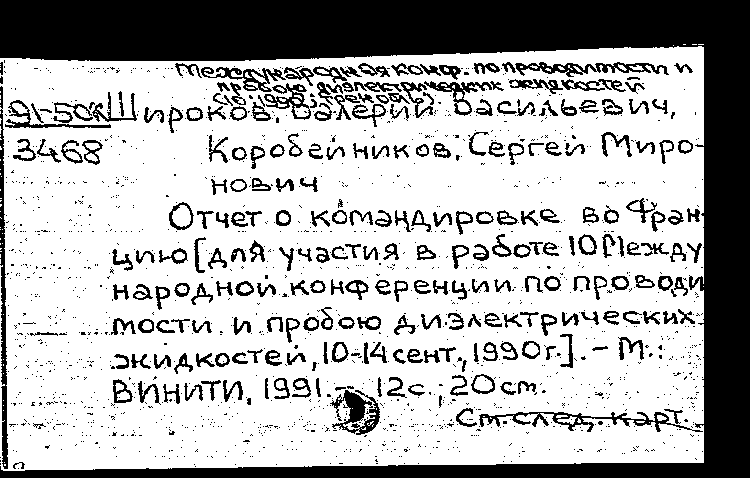 Международная конф. по проводимости и
пробою диэлектрических жидкостей
(10; 1990; Гренобль)
91-50к Широков, Валерий Васильевич,
3468 Коробейников, Сергей Миро-
нович
Отчет о командировке во Фран-
цию [для участия в работе 10 Между
народной конференции по проводи
мости и пробою диэлектрических
жидкостей, 10-14 сент., 1990г.]. - М.:
ВИНИТИ, 1991. - 12с.; 20см.
См. след. карт.